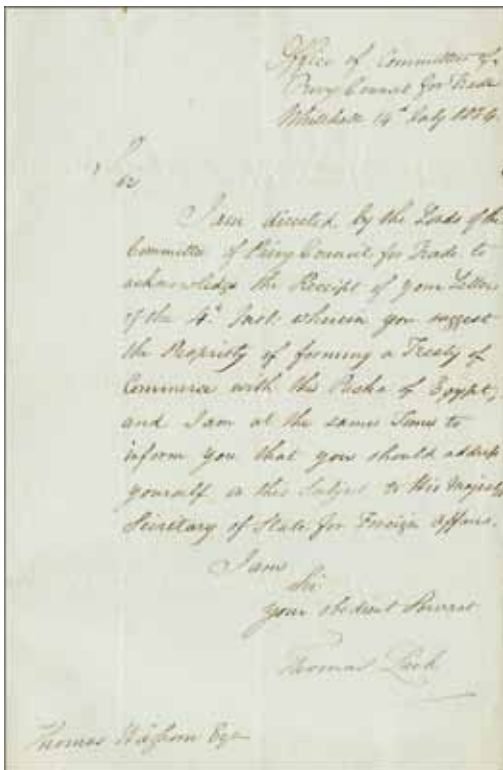 Office of Committee of
Privy Council for Trade
Whitehall 14th July 1834.
Sir
I am directed by the Lords of the
Committee of Privy Council for Trade to
acknowledge the Receipt of your Letter
of the 4th Inst. wherein you suggest
the Propriety of forming a Treaty of
Commerce with the Pasha of Egypt,
and I am at the same Time to
inform you that you should address
yourself on this Subject to His Majesty's
Secretary of State for Foreign Affairs.
I am
Sir
your obedient Servant
Thomas Lack
Thomas Waghorn Esqr